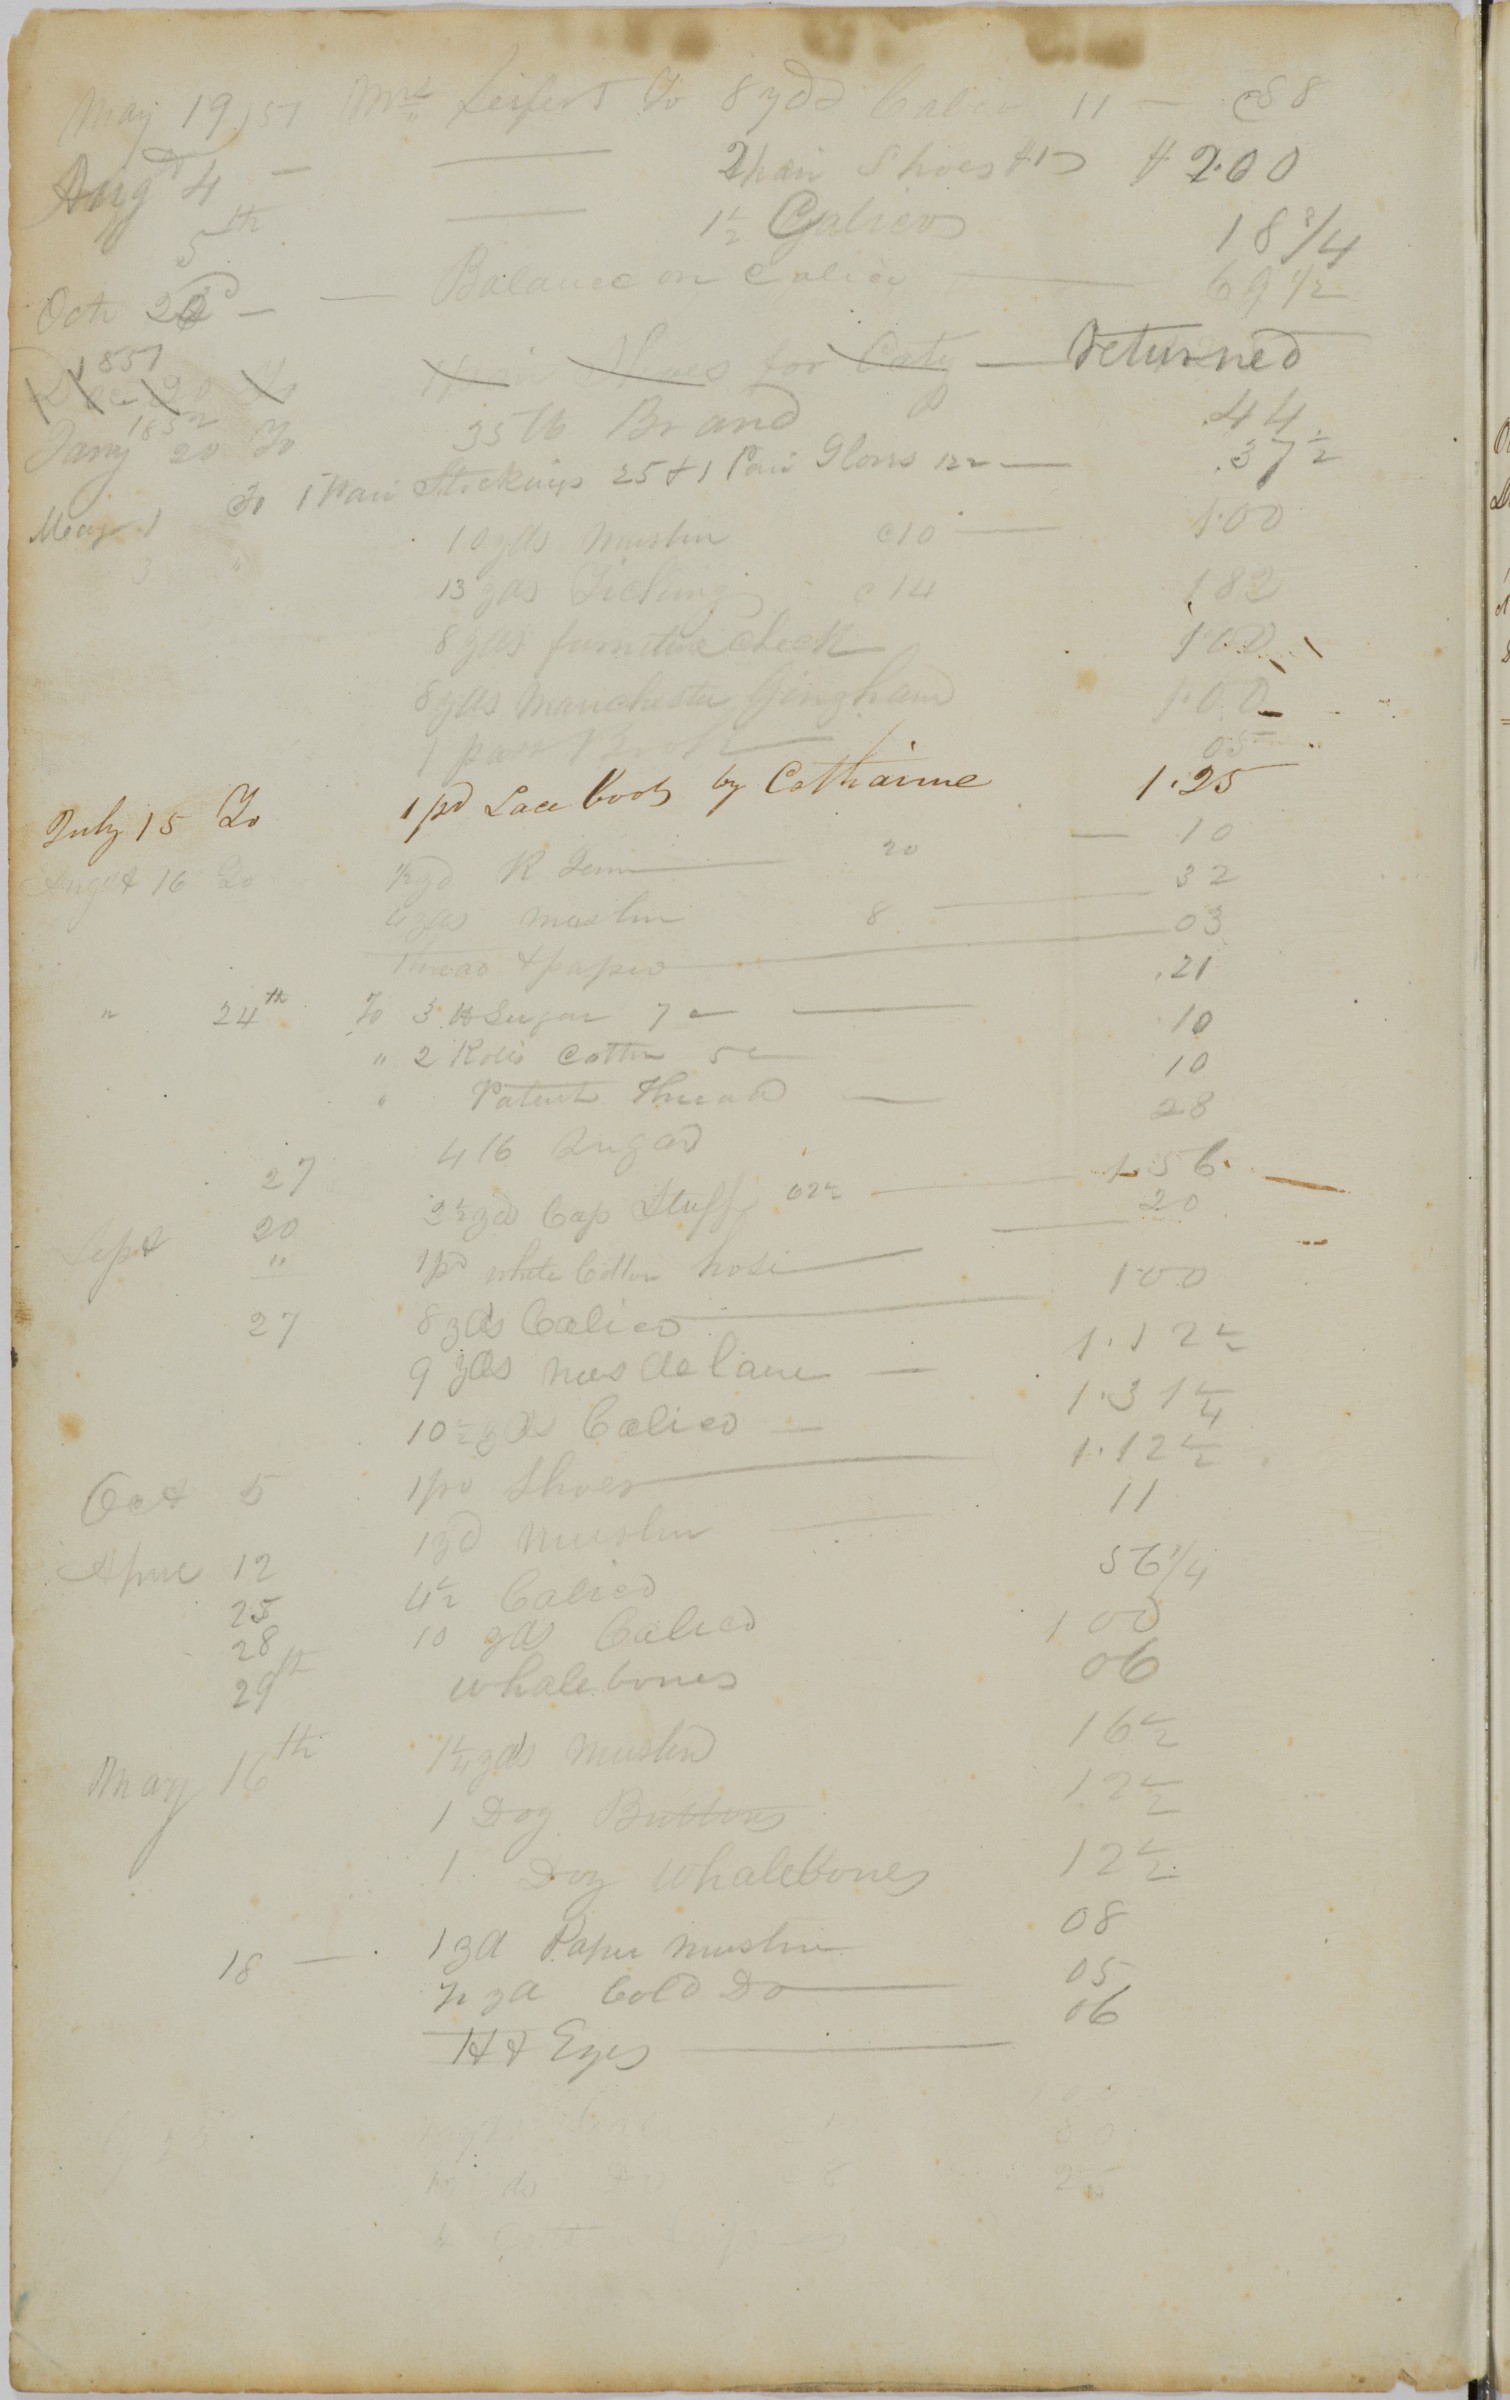 May 19, 51 Mrs Seifert To 8 yds Calico 11 — 88
Augst 4 — 2 pair Shoes $1 $2.00
5th 1½ Calico 18 3/4
Oct 22d — Balance on Calico 69 1/2
1851
Dec 20 To 1 pair Shoes for Caty — returned
1852
Jany 20 To 35 lb Bran .44
May 1 To 1 Pair Stockings 25 & 1 Pair Gloves 12½ — .37½
3 " 10 yds muslin c10 — 1.00
13 yds Ticking c14 1.82
8 yds furniture check 1.00
8 yds Manchester Gingham 1.00
1 paper 05
July 15 To 1 pr Lace boots by Catharine 1.25
August 16 To ½ yd 20 — 10
4 yds muslin 8 — 32
Thread & paper 03
" 24th To 3 lb Sugar 7c — .21
" 2 Rolls Cotton 5c 10
" Patent Thread — 10
27 4 lb Sugar 28
Sept 20 2½ yd Cap Stuff 62½ — 1.56
" 1 pr white Cotton hose — 20
27 8 yds Calico — 1.00
9 yds mus de laine — 1.12½
10½ yds Calico — 1.31¼
Oct 5 1 pr Shoes — 1.12½
1 yd muslin — 11
April 12 4½ Calico 56 1/4
25 10 yds Calico 1 00
28 whalebones 06
29th
May 16th 1¼ yds muslin 16½
1 Doz Buttons 12½
1 Doz whalebones 12½
18 — 1 yd Paper muslin 08
½ yd Cold Do — 05
H & Eyes — 06
25